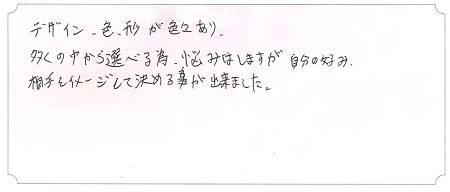 デザイン、色、形が色々あり、
多くの中から選べる為、悩みはしますが自分の好み、
相手をイメージして決める事が出来ました。